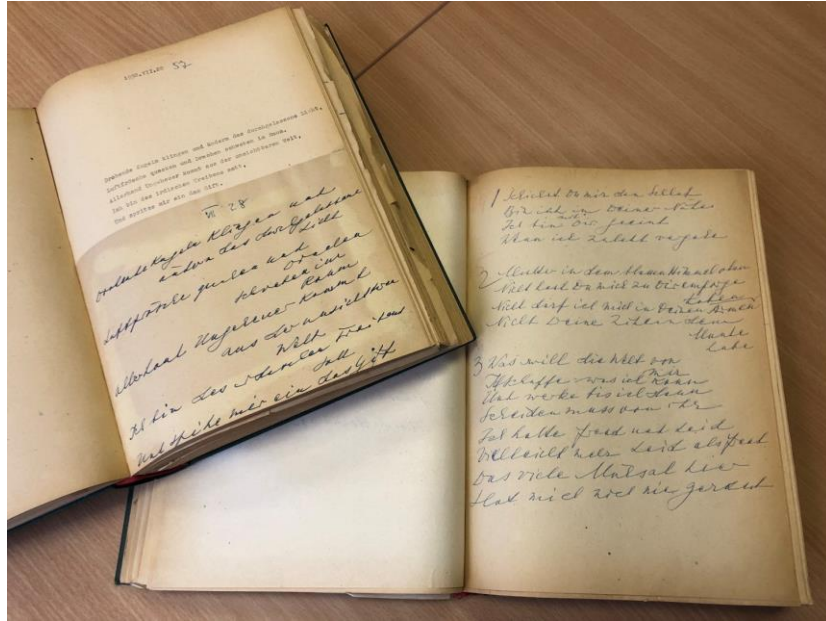 57
Drehende Kugeln klingen und ändern das durchgelassene Licht.
Luftfrösche quarren und Drachen schweben im Raum.
Allerhand Ungeheuer kommt aus der unsichtbaren Welt.
Ich bin des irdischen Treibens satt.
Und spritze mir ein das Gift.
VII 28
Drehende Kugeln klingen und
ändern das
Licht
Luftfrösche und
Drachen
schweben im
Raum
allerhand Ungeheuer kommt
aus der unsichtbaren
Welt
Ich bin des irdischen Treibens
satt
Und mir ein das Gift
1 Du mir den
Dir ist in Deiner Nähe
Ich bin mit Dir
Wenn ich zuletzt
2 Mutter in dem blauen Himmel oben
Du mich zu Dir
Nicht darf ich mich in Deinen Armen
Nicht Deine Zithern denn
3 Was will die Welt von
mir
Ich schaffe was ich kann
Und werke bis ich dann
Scheiden muss von ihr
Ich hatte Freud und Leid
Vielleicht mehr Leid als Freud
Das viele Mühsal hier
Hat mich noch nie gereut